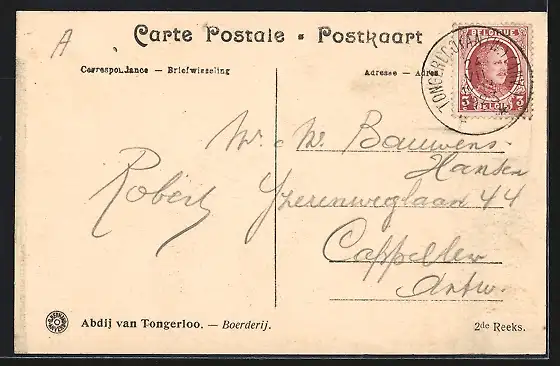 A
Carte Postale - Postkaart
Correspondance — Briefwisseling
Adresse — Adres
BELGIQUE
5 5
BELGIE
Mr. Mr. Bauwens-
Hansen
Robert
Yzerenweglaan 44
Cappellen
Antw.
Abdij van Tongerloo. — Boerderij.
2de Reeks.